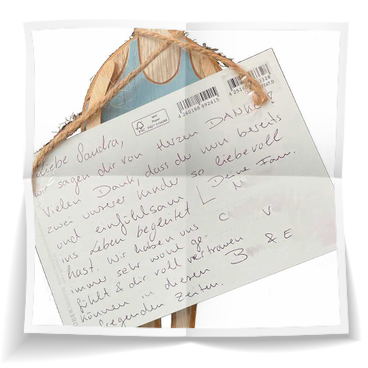 Liebe Sandra,
wir sagen dir von Herzen DANKE!
Vielen Dank, dass du nun bereits
zwei unserer Kinder so liebevoll
und einfühlsam
ins Leben begleitet
hast. Wir haben uns
immer sehr wohl ge-
fühlt & dir voll vertrauen
können in diesen
aufregenden Zeiten.
Deine Fam.
L
N
C V
B & E
FSC